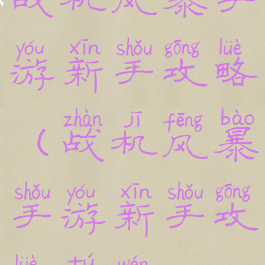 战机风暴手
yóu xīn shǒu gōng lüè
游新手攻略
zhàn jī fēng bào
（战机风暴
shǒu yóu xīn shǒu gōng
手游新手攻
lüè tú wén